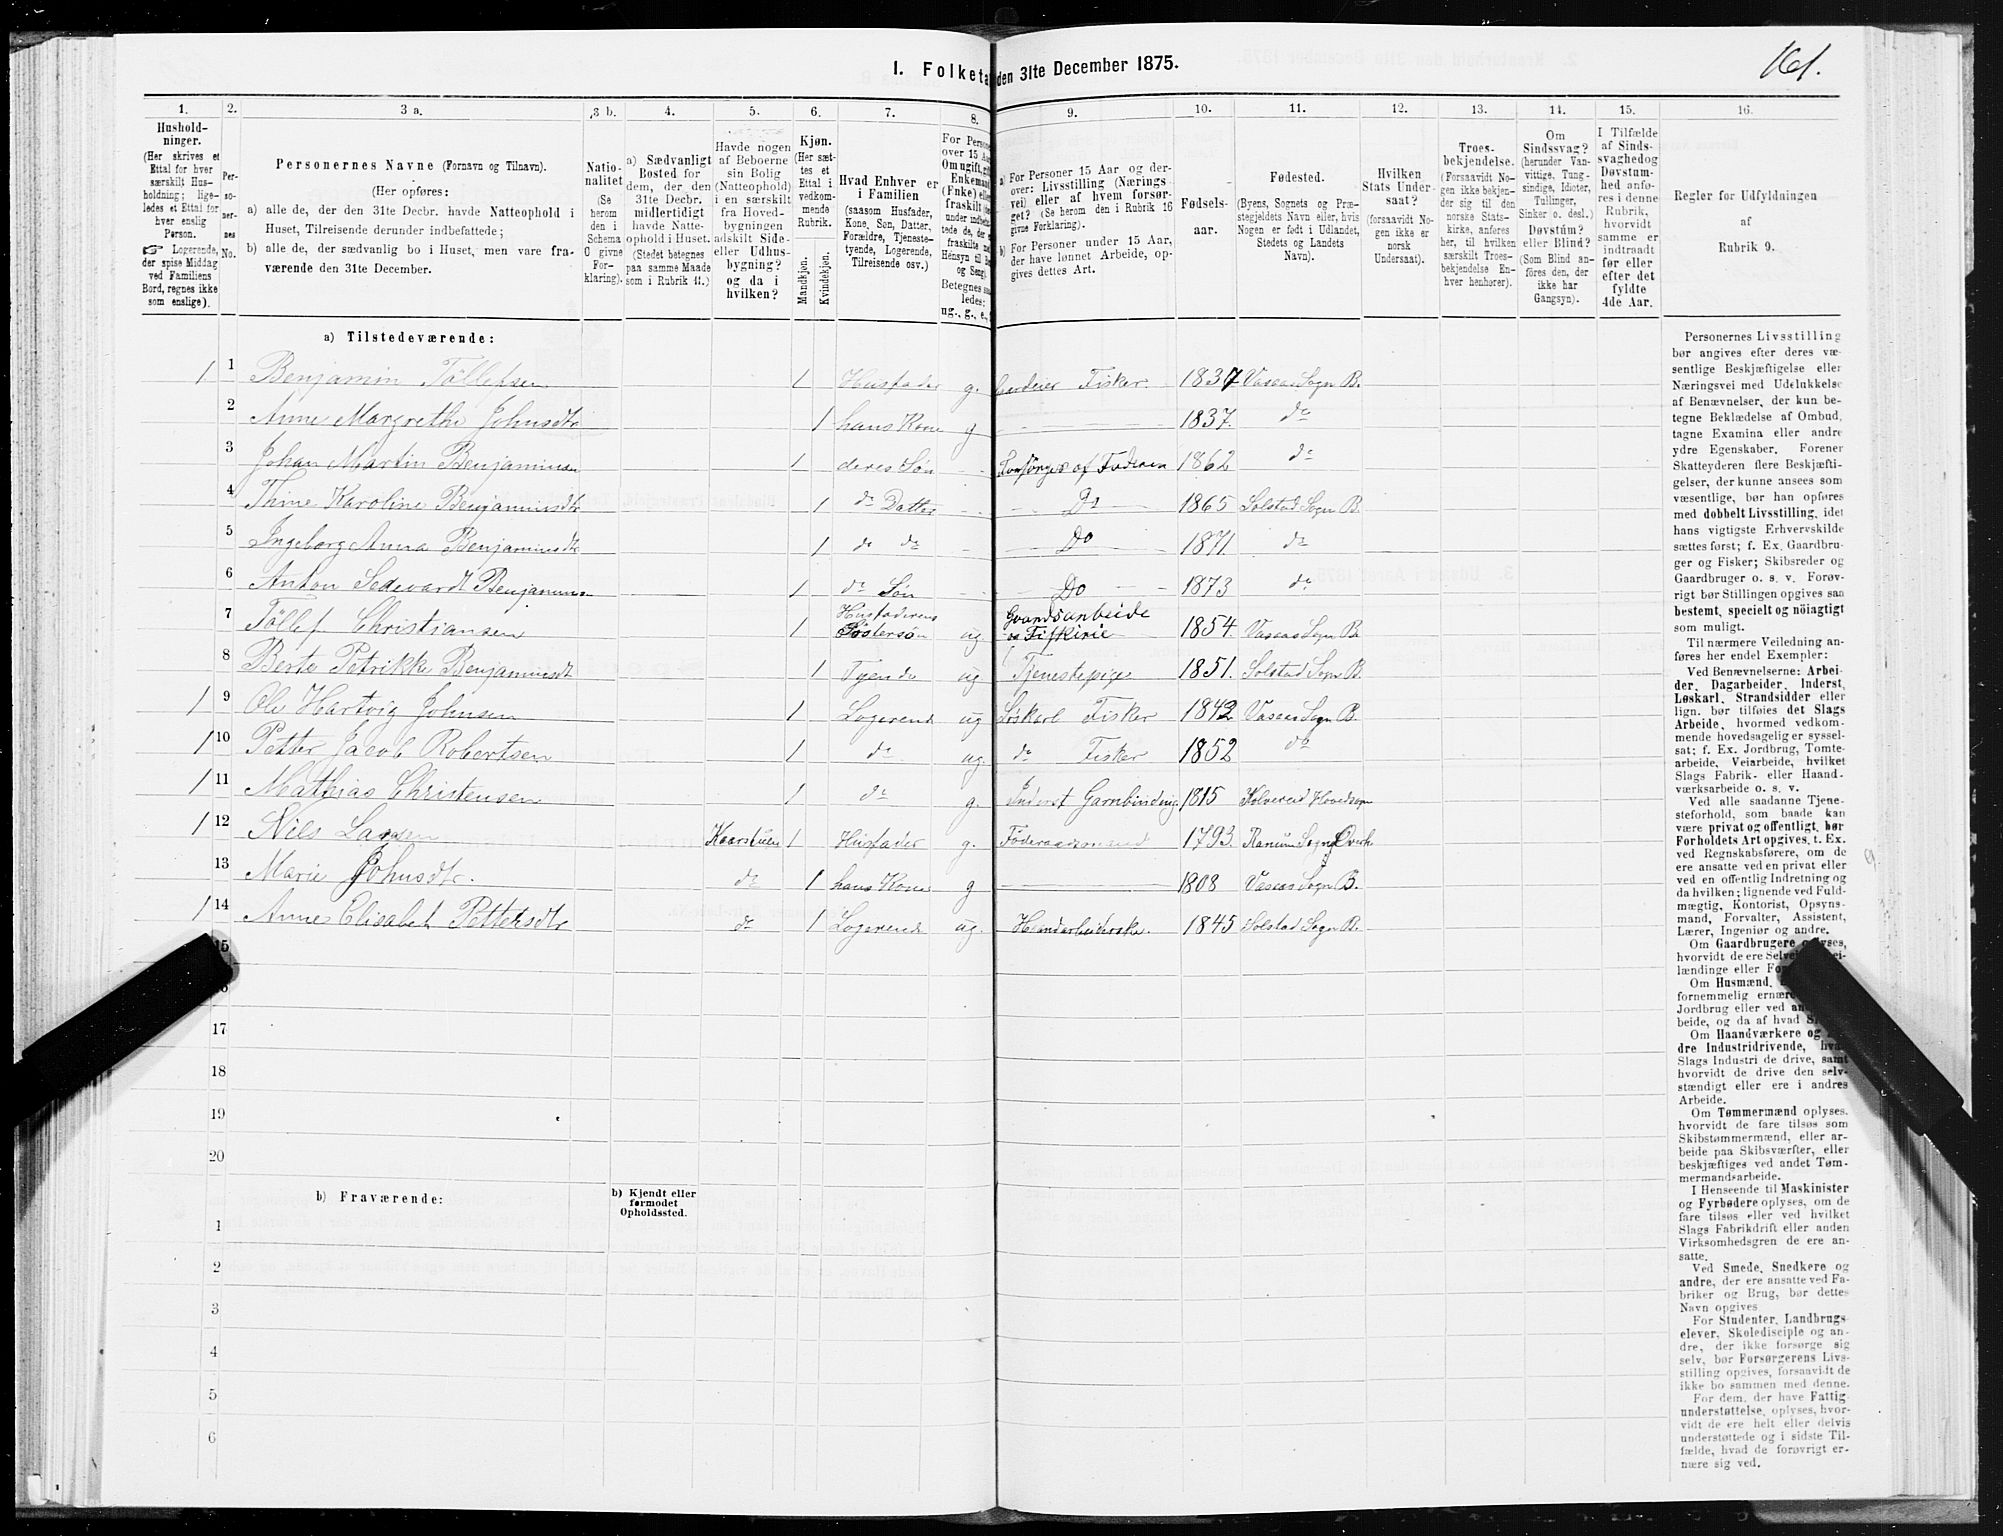 161.
I. Folketa den 31te December 1875.
1. 2. 3 a. 3 b. 4. 5. 6. 7. 8. 9. 10. 11. 12. 13. 14. 15. 16.
Hushold-
ninger.
(Her skrives et
Ettal for hver
særskilt Hus-
holdning; lige-
ledes et Ettal for
hver enslig
Person.
☞ Logerende,
der spise Middag
ved Familiens
Bord, regnes ikke
som enslige).
Per-
so-
ner-
nes
No.
Personernes Navne (Fornavn og Tilnavn).
(Her opføres:
a) alle de, der den 31te Decbr. havde Natteophold i
Huset, Tilreisende derunder indbefattede;
b) alle de, der sædvanlig bo i Huset, men vare fra-
værende den 31te December.
Natio-
nalitet
(Se
herom
den i
Schema
O givne
For-
klaring).
a) Sædvanligt
Bosted for
dem, der den
31te Decbr.
midlertidigt
havde Natte-
ophold i Huset.
(Stedet betegnes
paa samme Maade
som i Rubrik 11.)
Havde nogen
af Beboerne
sin Bolig
(Natteophold)
i en særskilt
fra Hoved-
bygningen
adskilt Side-
eller Udhus-
bygning?
og da i
hvilken?
Kjøn.
(Her sæt-
tes et
Ettal i
vedkom-
mende
Rubrik.
Mandkjøn.
Kvindekjøn.
Hvad Enhver er
i Familien
(saasom Husfader,
Kone, Søn, Datter,
Forældre, Tjeneste-
tyende, Logerende,
Tilreisende osv.)
For Person
over 15 Aa
Om ugift, gif
Enkemand
(Enke) elle
fraskilt
under indbefat-
tede de,
fraskilte
Hensyn til B
og Seng).
Betegnes saa
ledes:
ug., g., e.,
a) For Personer 15 Aar og der-
over: Livsstilling (Nærings-
vei) eller af hvem forsør-
get? (Se herom den i Rubrik 16
givne Forklaring).
b) For Personer under 15 Aar,
der have lønnet Arbeide, op-
gives dettes Art.
Fødsels-
aar.
Fødested.
(Byens, Sognets og Præ-
stegjeldets Navn eller, hvis
Nogen er født i Udlandet,
Stedets og Landets
Navn).
Hvilken
Stats Under-
saat?
(forsaavidt No-
gen ikke er
norsk
Undersaat).
Troes-
bekjendelse.
(Forsaavidt No-
gen ikke bekjen-
der sig til den
norske Stats-
kirke, anføres
her, til hvilken
særskilt Troes-
bekjendelse En-
hver henhører).
Om
Sindssvag?
(herunder Van-
vittige, Tung-
sindige, Idioter,
Tullinger,
Sinker o. desl.)
Døvstum?
eller Blind?
(Som Blind an-
føres den, der
ikke har
Gangsyn).
I Tilfælde
af Sinds-
svaghedog
Døvstum-
hed anfø-
res i denne
Rubrik,
hvorvidt
samme er
indtraadt
før eller
efter det
fyldte
4de Aar.
Regler for Udfyldningen
af
Rubrik 9.
a) Tilstedeværende:
1 1 Benjamin Tøllefsen 1 Husfader g. Fisker. 1837 Vasaas Sogn B.
2 Anne Margrethe Johnsdtr 1 hans Kone g 1837. do
3 Johan Martin Benjaminsen 1 deres Søn Forsørges af Faderen 1862 do
4 Thine Karoline Benjaminsdtr 1 do Datter Do 1865 Solstad Sogn B.
5 Ingeborg Anna Benjaminsdtr 1 do do Do 1871 do
6 Anton Sedevardt Benjaminsen 1 do Søn Do 1873 do
7 Tøllef Christiansen 1 Husfaderens Søstersøn ug Gaardsarbeide og Fiskerie 1854. Vasaas Sogn B
8 Berte Petrikke Benjaminsdt 1 Tyende ug Tjenestepige 1851. Solstad Sogn B.
1 9 Ole Hartvig Johnsen 1 Logerend ug Løskarl Fisker 1842 Vasaas Sogn B.
1 10 Petter Jacob Robertsen 1 do ug. do Fisker 1852 do
1 11 Mathias Christensen 1 do g. Inderst Garnbinding 1815 Kolvereid Hovedsogn
1 12 Nils Larsen 1 Husfader g. Føderaadsmand 1793. Ranum Sogn Overh
13 Marie Johnsdtr. do 1 hans Kone g 1808 Vasaas Sogn B.
1 14 Anne Elisabet Pettersdtr do 1 Logerend ug. Haandarbeiderske. 1845 Solstad Sogn B.
15
17
18
19
20
b) Fraværende:
b) Kjendt eller
formodet
Opholdssted.
1
2
3
4
5
6
Personernes Livsstilling
bør angives efter deres væ-
sentlige Beskjæftigelse eller
Næringsvei med Udelukkelse
af Benævnelser, der kun be-
tegne Beklædelse af Ombud,
tagne Examina eller andre
ydre Egenskaber. Forener
Skatteyderen flere Beskjæfti-
gelser, der kunne ansees som
væsentlige, bør han opføres
med dobbelt Livsstilling, idet
hans vigtigste Erhvervskilde
sættes først; f. Ex. Gaardbru-
ger og Fisker; Skibsreder og
Gaardbruger o. s. v. Forøv-
rigt bør Stillingen opgives saa
bestemt, specielt og nöiagtigt
som muligt.
Til nærmere Veiledning an-
føres her endel Exempler:
Ved Benævnelserne: Arbei-
der, Dagarbeider, Inderst,
Løskarl, Strandsidder eller
lign. bør tilføies det Slags
Arbeide, hvormed vedkom-
mende hovedsagelig er syssel-
sat; f. Ex. Jordbrug, Tomte-
arbeide, Veiarbeide, hvilket
Slags Fabrik- eller Haand-
værksarbeide o. s. v.
Ved alle saadanne Tjene-
steforhold, som baade kan
være privat og offentligt, bør
Forholdets Art opgives, t. Ex.
ved Regnskabsførere, om de
ere ansatte ved en privat eller
ved en offentlig Indretning og
da hvilken; lignende ved Fuld-
mægtig, Kontorist, Opsyns-
mand, Forvalter, Assistent,
Lærer, Ingeniør og andre.
Om Gaardbrugere oplyses,
hvorvidt de ere Selveiere, Lei-
lændinge eller
Om Husmænd,
fornemmelig ernære
Jordbrug eller ved
beide, og da af hvad
Om Haandværkere og
dre Industridrivende,
Slags Industri de drive, samt
hvorvidt de drive den selv-
stændigt eller ere i andres
Arbeide.
Om Tømmermænd oplyses,
hvorvidt de fare tilsøs som
Skibstømmermænd, eller ar-
beide paa Skibsværfter, eller
beskjæftiges ved andet Tøm-
mermandsarbeide.
I Henseende til Maskinister
og Fyrbødere oplyses, om de
fare tilsøs eller ved hvilket
Slags Fabrikdrift eller anden
Virksomhedsgren de ere an-
satte.
Ved Smede, Snedkere og
andre, der ere ansatte ved Fa-
briker og Brug, bør dettes
Navn opgives
For Studenter, Landbrugs-
elever, Skoledisciple og an-
dre, der ikke forsørge sig
selv, bør Forsørgerens Livs-
stilling opgives, forsaavidt de
ikke bo sammen med denne.
For dem, der have Fattig-
understøttelse, oplyses, hvor-
vidt de ere helt eller delvis
understøttede og i sidste Til-
fælde, hvad de forøvrigt er-
nære sig ved.